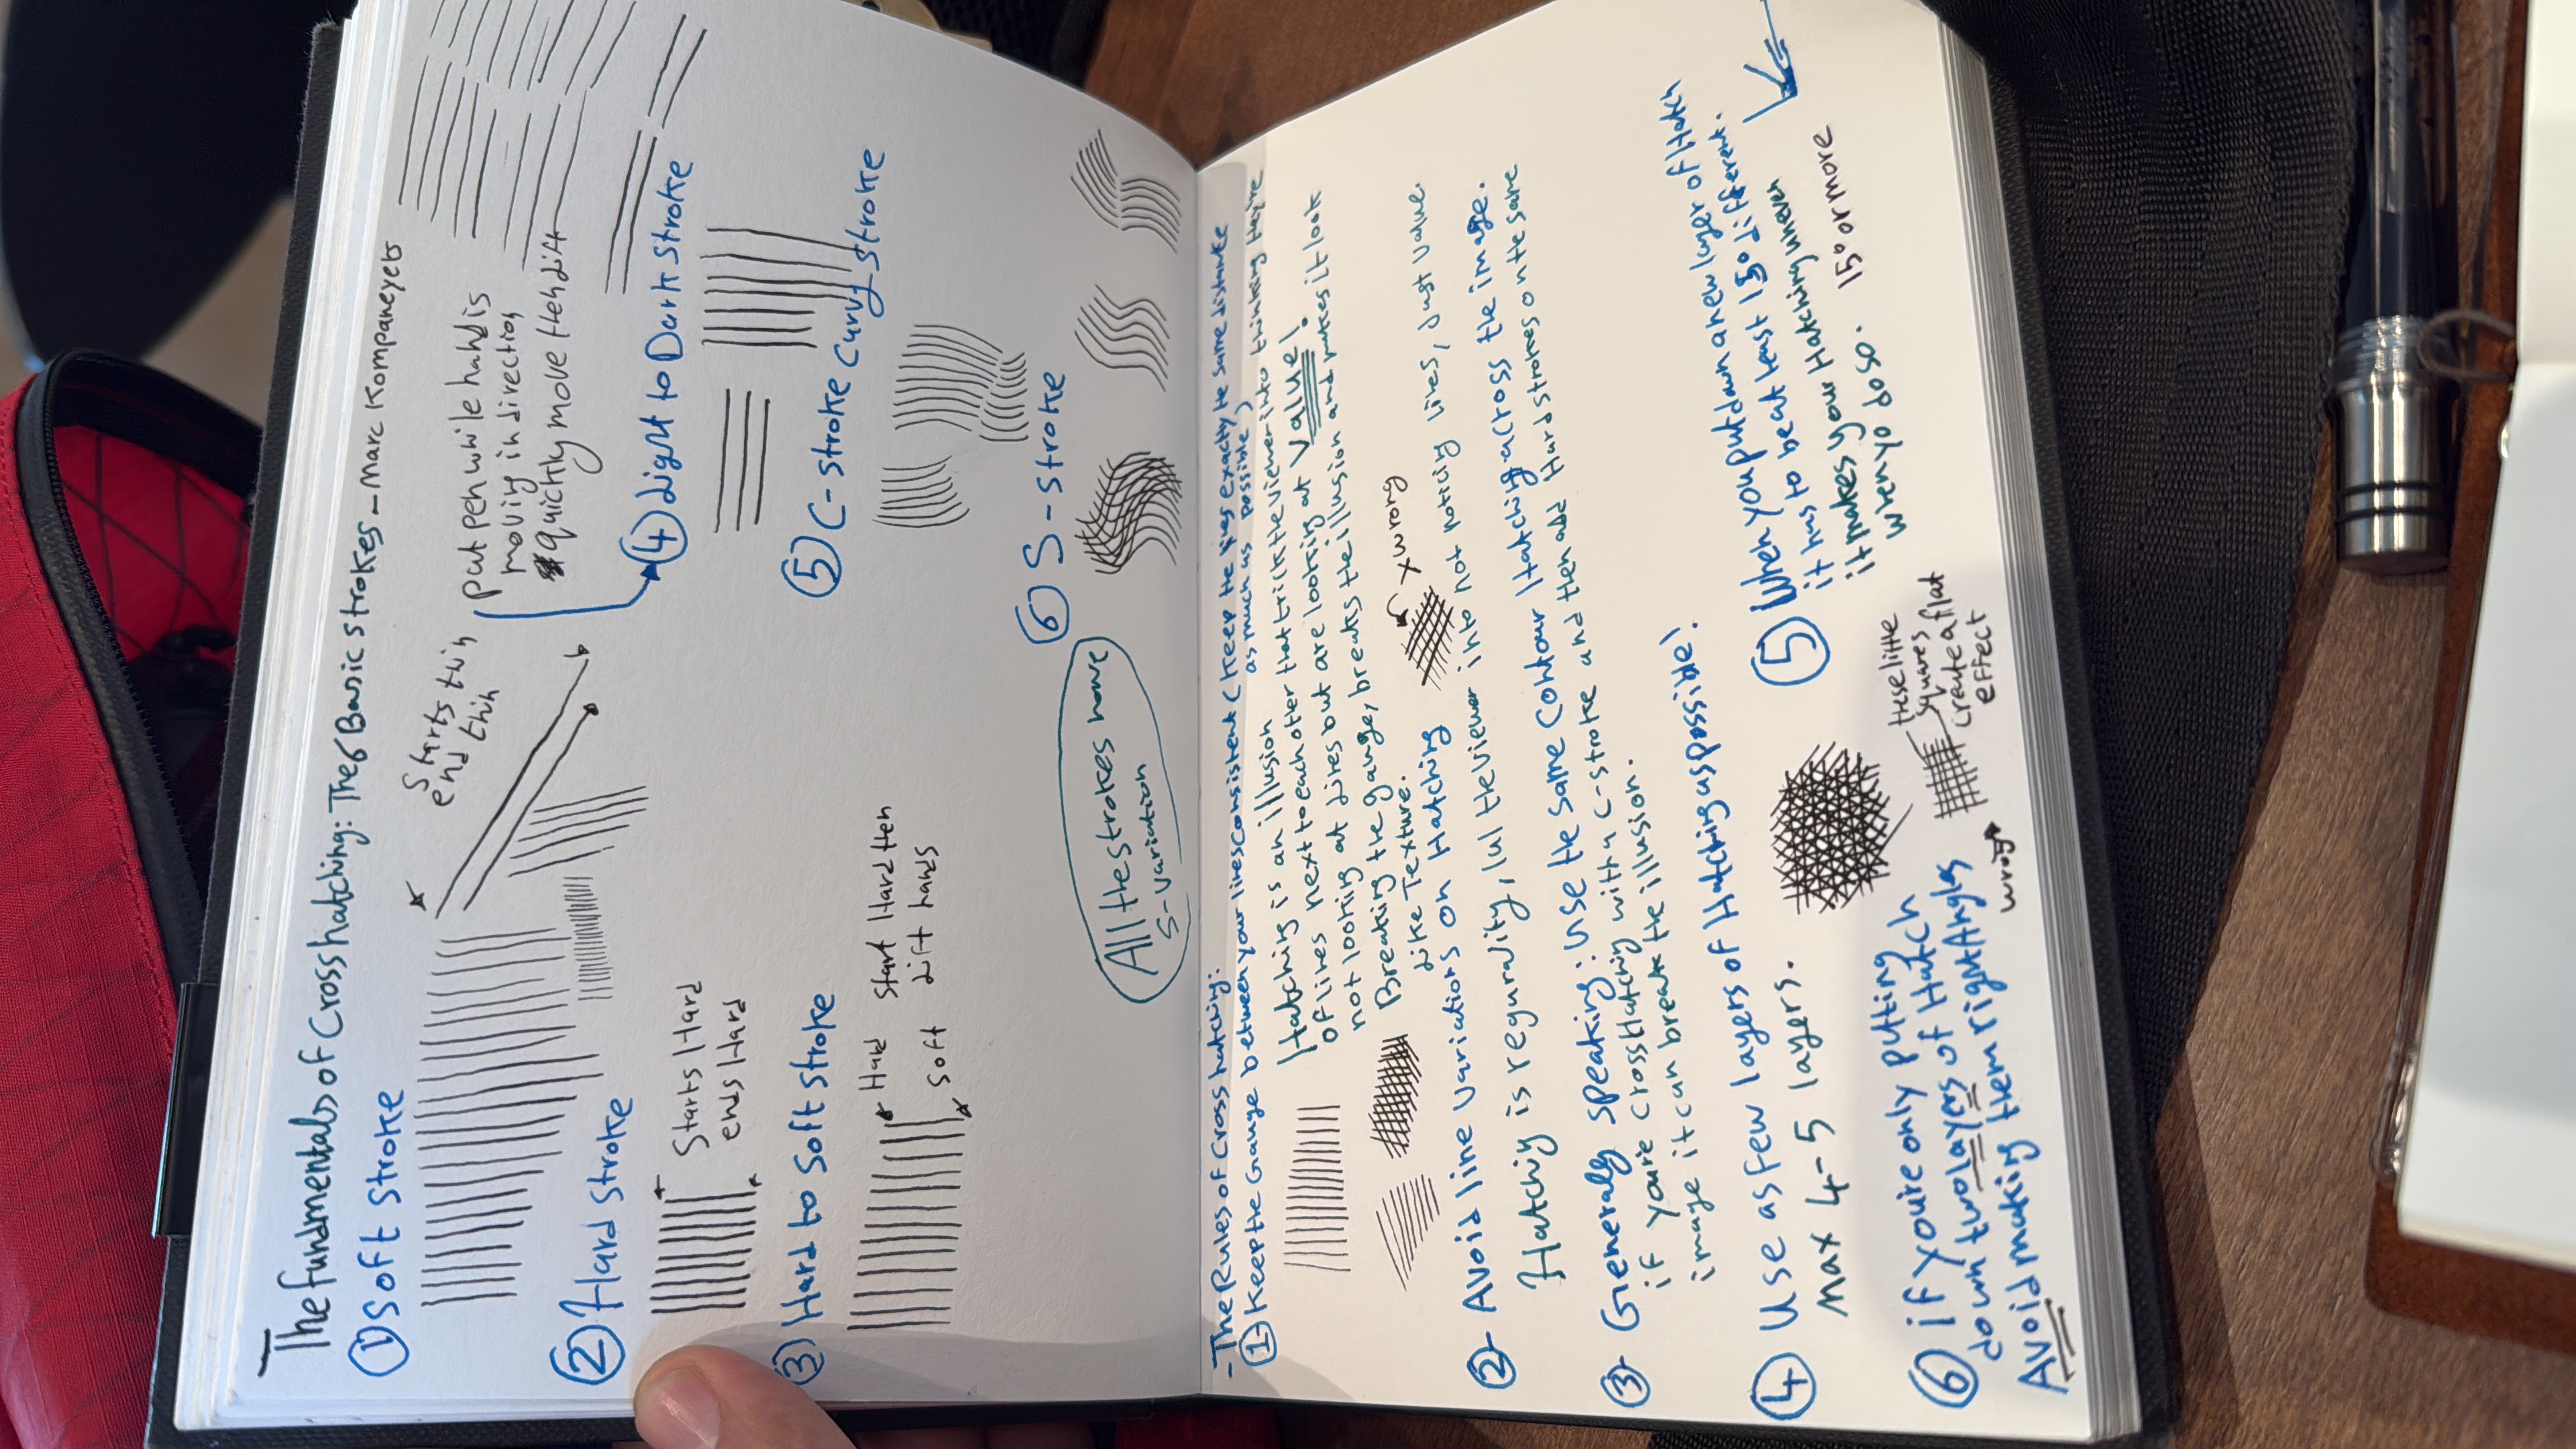 The fundmentals of Cross hatching: The 6 Basic strokes - Marc Kompaneyets
① Soft Stroke
starts thin
end thin
put pen while hand is
moving in direction
quickly move then lift
② Hard Stroke
Starts Hard
ends Hard
④ Light to Dark stroke
③ Hard to Soft Stroke
Hard
Start Hard then
Soft
Lift hands
⑤ C-stroke Curvy-stroke
⑥ S-stroke
All the strokes have
S-variation
- The Rules of Cross hatching:
① Keep the Gauge between your lines consistent (keep the lines exactly the same distance
as much as possible)
Hatching is an illusion
of lines next to each other that trick the viewer into thinking they're
not looking at lines but are looking at Value!
Breaking the gauge, breaks the illusion and makes it look
Like Texture.
x wrong
② Avoid line variations on Hatching
Hatching is regurality, lul the viewer into not noticing lines, Just value.
③ Generally speaking: use the same Contour Hatching across the image.
if you're crossHatching with C-stroke and then add Hard strokes on the same
image it can break the illusion.
④ Use as few layers of Hatching as possible!
max 4-5 layers.
⑤ When you put down a new layer of Hatch
it has to be at least 15° different.
it makes your Hatching uneven
when yo do so.
15° or more
⑥ if you're only putting
down two layers of Hatch
Avoid making them right Angles
wrong
these little
squares
create a flat
effect